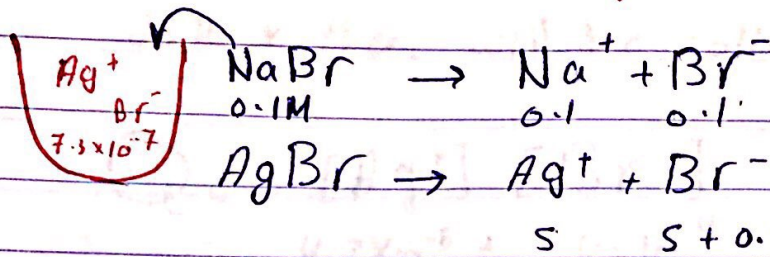 Ag⁺
Br⁻
7.3×10⁻⁷
NaBr → Na⁺ + Br⁻
0.1M 0.1 0.1
AgBr → Ag⁺ + Br⁻
S S + 0.